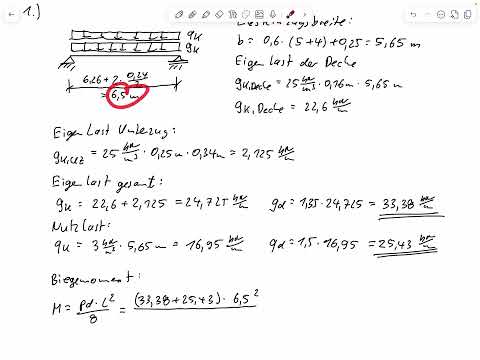 1.)
qk
gk
6,26 + 2 · 0,24/2
= 6,5 m
b = 0,6 · (5+4) + 0,25 = 5,65 m
Eigenlast der Decke
gk,Decke = 25 kN/m³ · 0,16m · 5,65 m
gk,Decke = 22,6 kN/m
Eigenlast Unterzug:
gk,UZ = 25 kN/m³ · 0,25m · 0,34m = 2,125 kN/m
Eigenlast gesamt:
gk = 22,6 + 2,125 = 24,725 kN/m gd = 1,35 · 24,725 = 33,38 kN/m
Nutzlast:
qk = 3 kN/m² · 5,65 m = 16,95 kN/m qd = 1,5 · 16,95 = 25,43 kN/m
Biegemoment:
M = pd · L²/8 = (33,38 + 25,43) · 6,5²